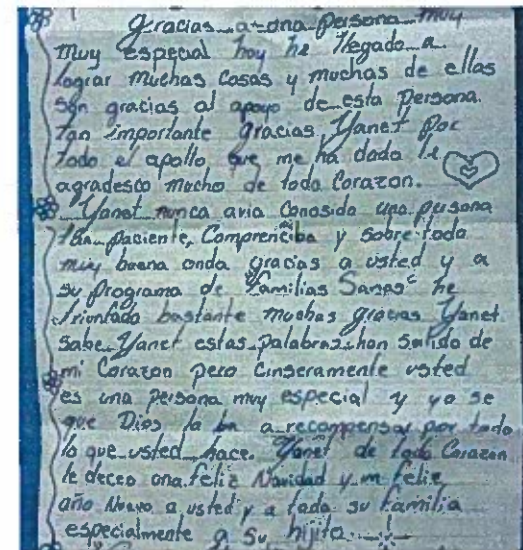 Gracias a una Persona muy
muy especial hoy he llegado a
lograr muchas Cosas y muchas de ellas
son gracias al apoyo de esta Persona.
tan importante gracias, Yanet por
todo el apollo que me ha dado le
agradesco mucho de todo Corazon.
Yanet nunca avia Conosido una persona
tan paciente, Comprenciba y sobre todo
muy buena onda gracias a usted y a
su programa de "Familias Sanas" he
triunfado bastante muchas gracias Yanet
Sabe Yanet estas palabras han salido de
mi Corazon pero Cinseramente usted
es una persona muy especial y yo se
que Dios la ba a recompensar por todo
lo que usted hace. Yanet de todo Corazon
le deceo una feliz Navidad y un feliz
año Nuevo a usted y a toda su familia
especialmente a su hijito.